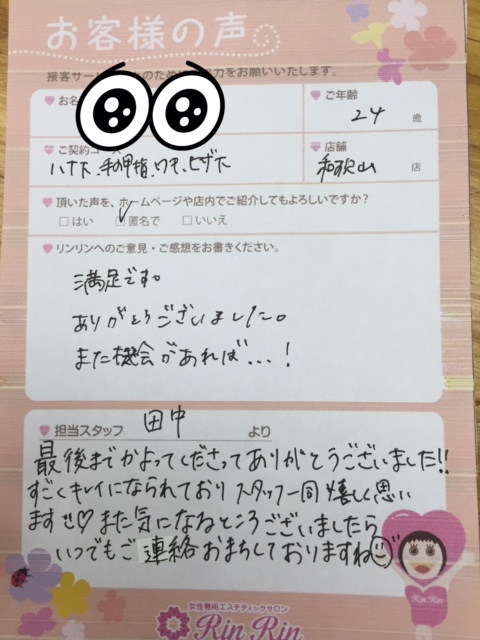 お客様の声
接客サー のため 力をお願いいたします。
お名
ご年齢
24 歳
ご契約コース
ハナ下、手の甲指、ワキ、ヒザ下
店舗
和歌山 店
頂いた声を、ホームページや店内でご紹介してもよろしいですか？
□はい ☑匿名で □いいえ
リンリンへのご意見・ご感想をお書きください。
満足です。
ありがとうございました。
また機会があれば...！
担当スタッフ 田中 より
最後までかよってくださってありがとうございました!!
すごくキレイになられており スタッフ一同 嬉しく思い
ます♡ また気になるところございましたら
いつでもご連絡おまちしておりますね
Rin Rin
女性専用エステティックサロン
Rin Rin